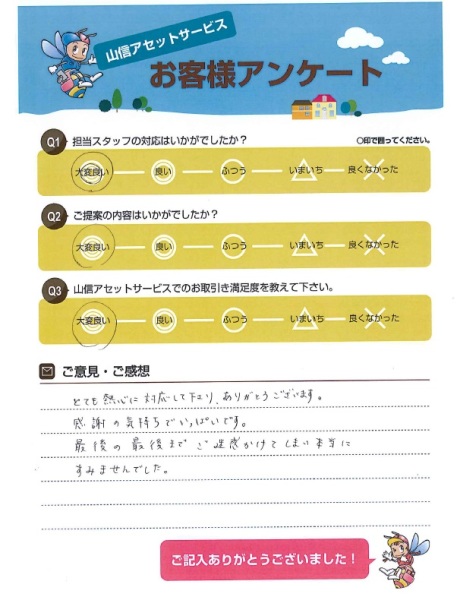 山信アセットサービス
お客様アンケート
Q1 担当スタッフの対応はいかがでしたか？ ○印で囲ってください。
大変良い 良い ふつう いまいち 良くなかった
Q2 ご提案の内容はいかがでしたか？
大変良い 良い ふつう いまいち 良くなかった
Q3 山信アセットサービスでのお取引き満足度を教えて下さい。
大変良い 良い ふつう いまいち 良くなかった
ご意見・ご感想
とても熱心に対応して下さり、ありがとうございます。
感謝の気持ちでいっぱいです。
最後の最後までご迷惑かけてしまい本当に
すみませんでした。
ご記入ありがとうございました！